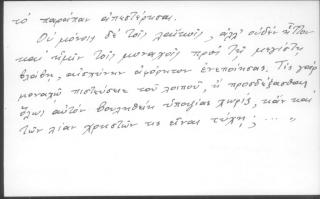 τὸ παράπαν ἀπεστέρησαι.
Οὐ μόνοις δὲ τοῖς λαϊκοῖς, ἀλλ' οὐδὲν ἧττον
καὶ ἡμῖν τοῖς μοναχοῖς πρὸς τῇ μεγίστῃ
βλάβῃ, αἰσχύνην ἀμύθητον ἐνεποίησας. Τίς γὰρ
μοναχῷ πιστεύσειε τοῦ λοιποῦ, ἢ προσδέξασθαι
ὅλως αὐτὸν βουληθείη ὑποψίας χωρίς, κἂν καὶ
τῶν λίαν χρηστῶν τις εἶναι τύχῃ; ... "